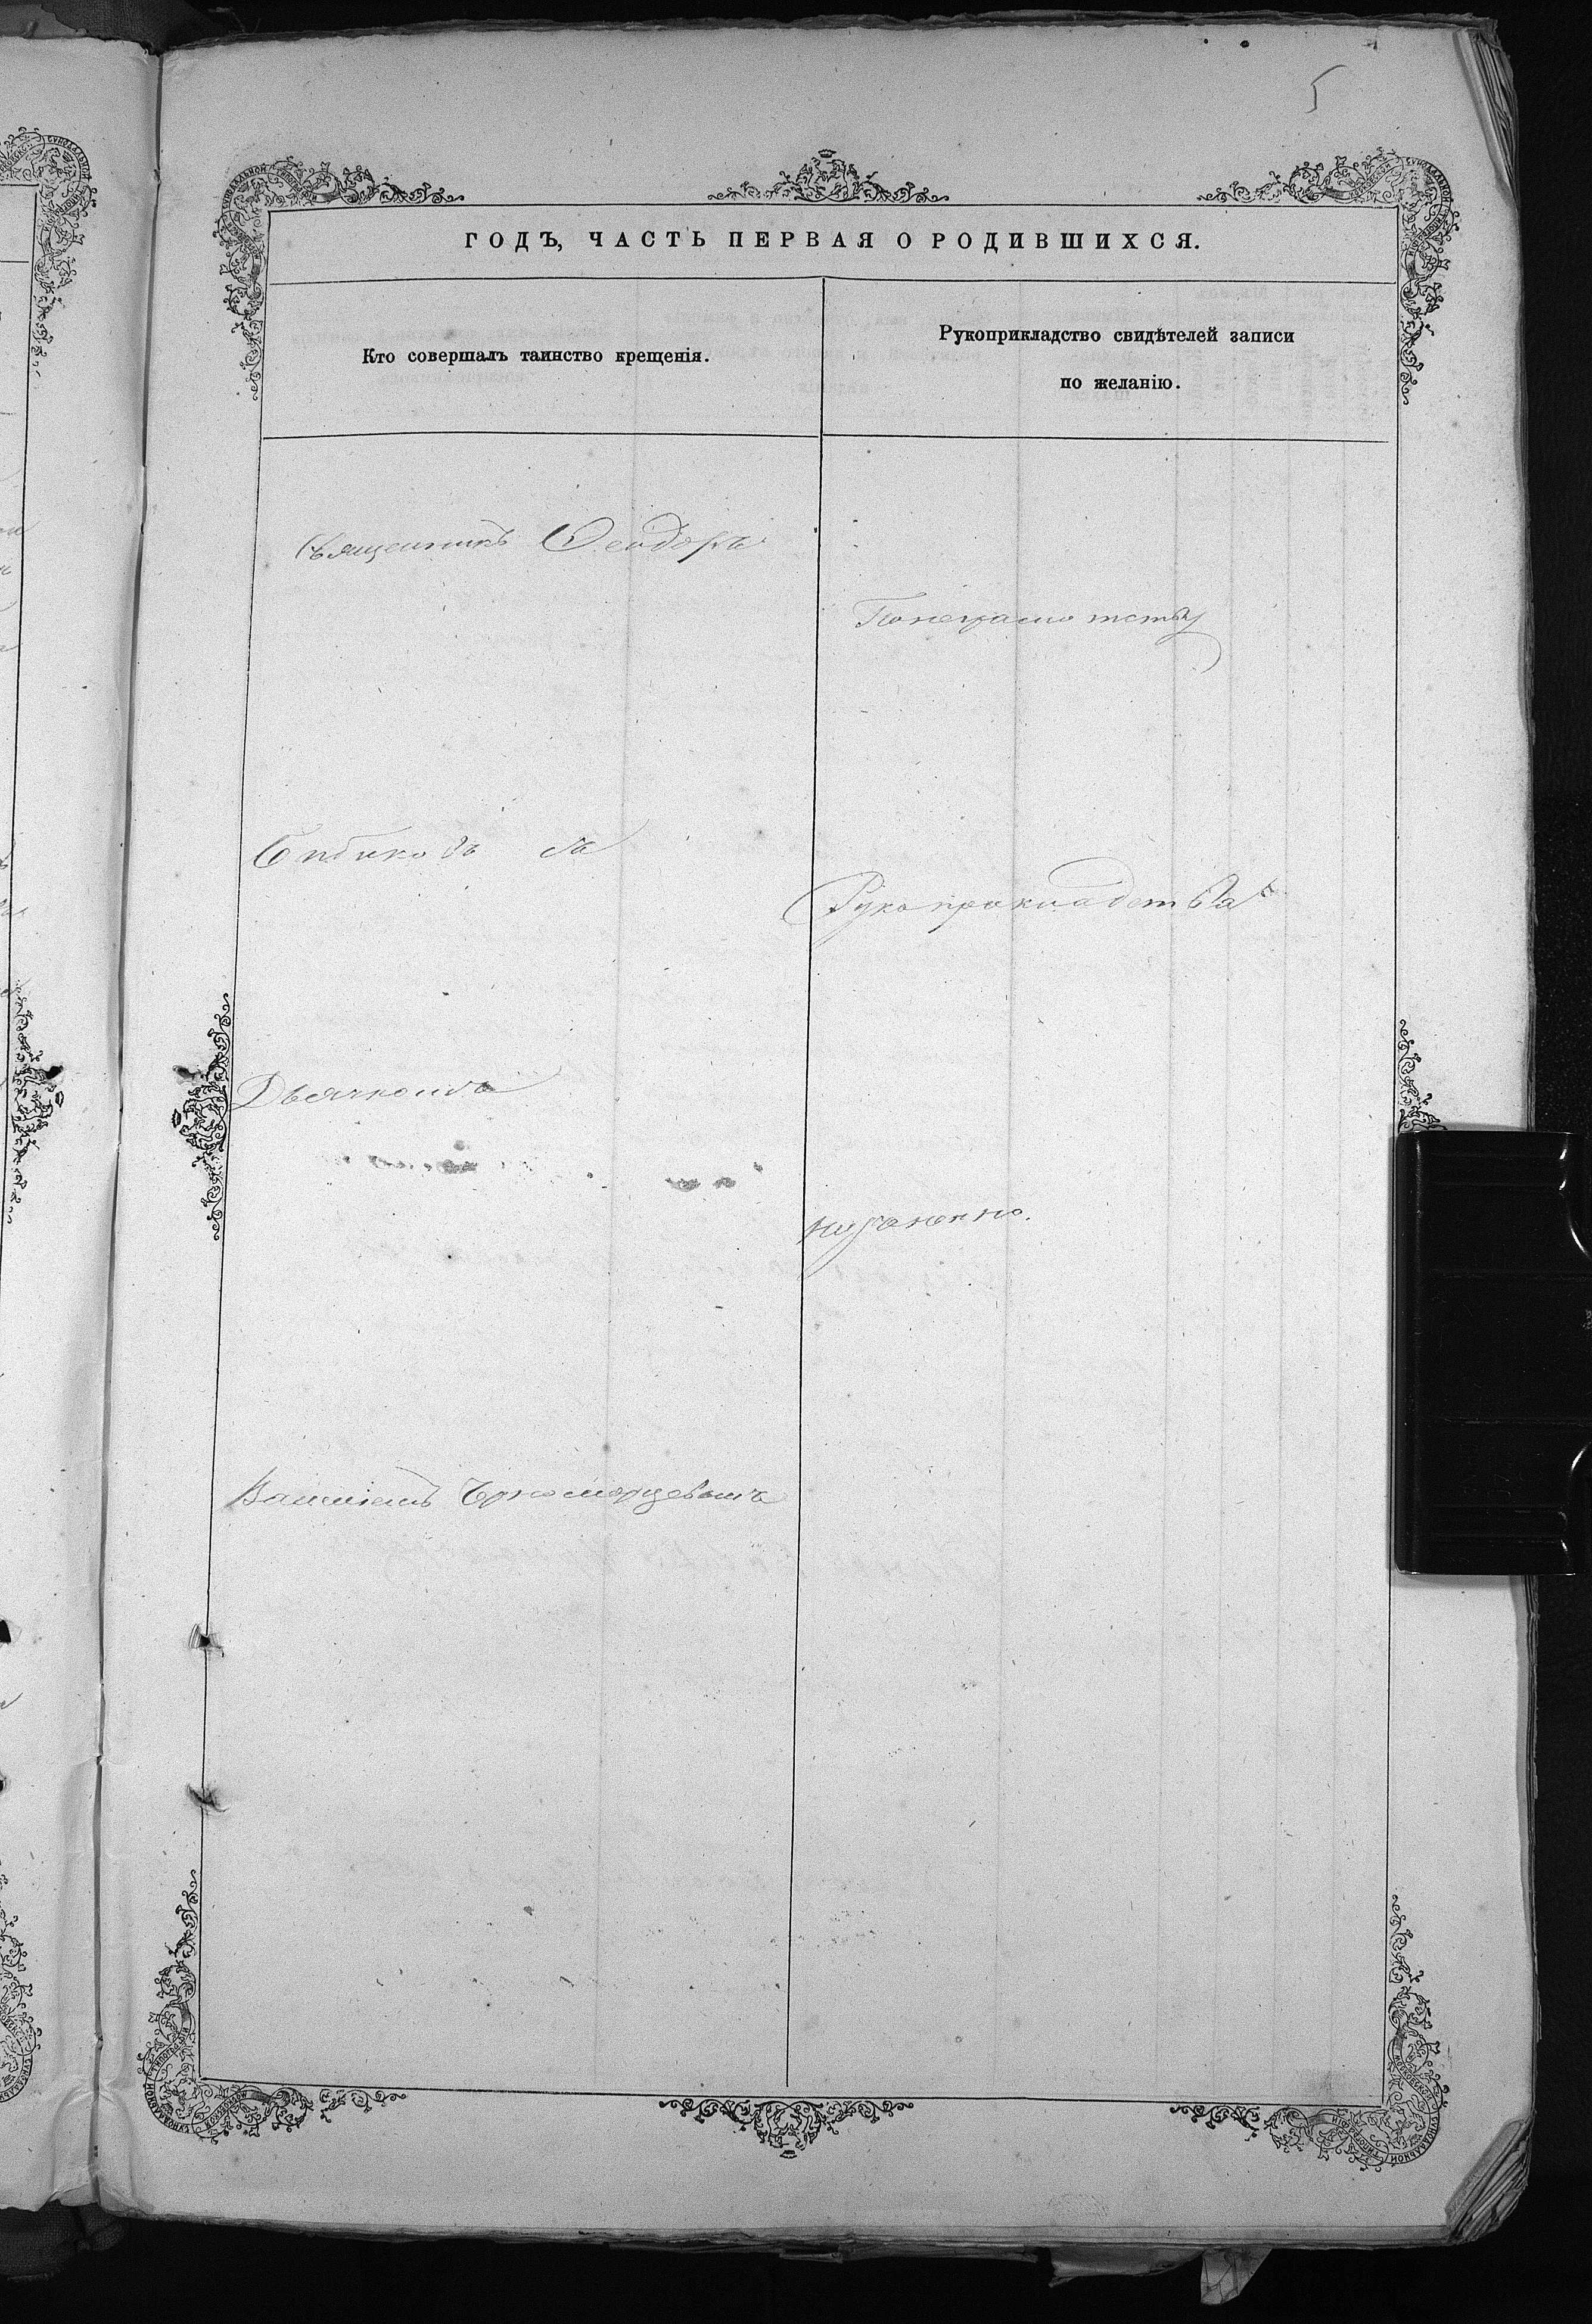 5
ГОДЪ, ЧАСТЬ ПЕРВАЯ О РОДИВШИХСЯ.
Кто совершалъ таинство крещенія.
Рукоприкладство свидѣтелей записи
по желанію.
Священникъ Ѳеодоръ
Бибиковъ съ
Дьячкомъ
Василіемъ Черноморцевымъ
Понеграмотству
Рукоприкладства
неучинено.